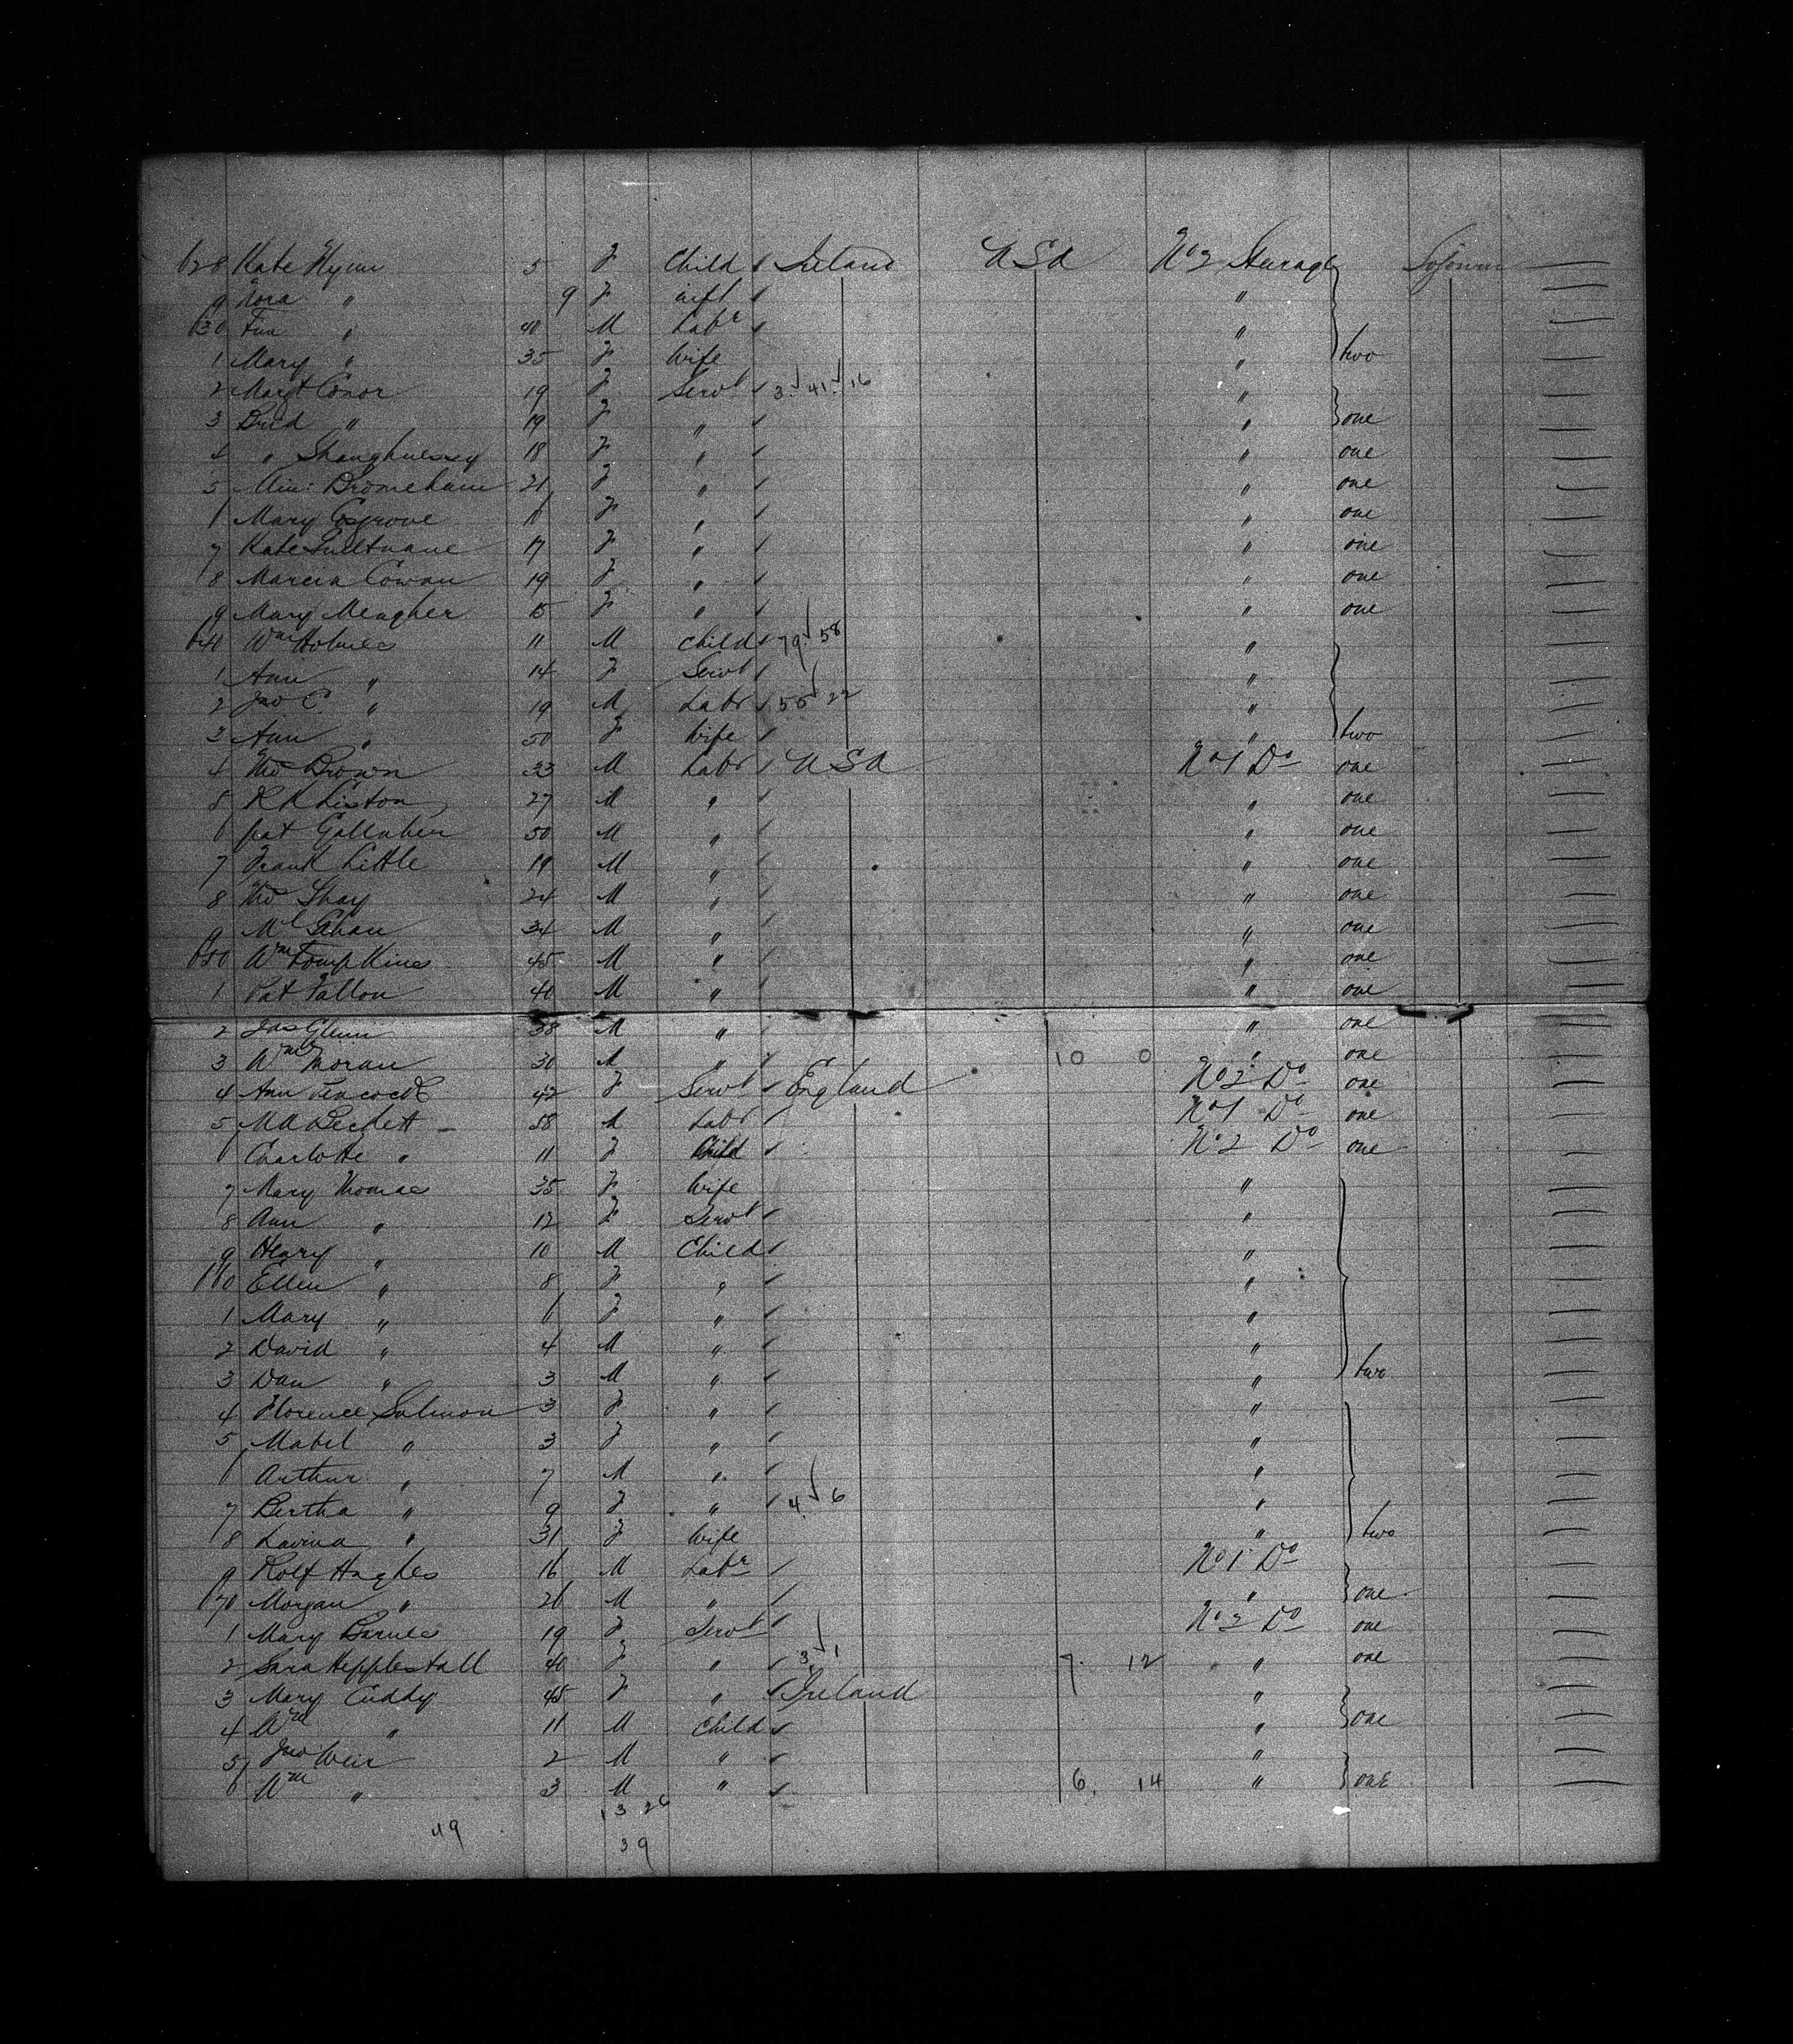 628 Kate Flynn 5 F Child Ireland USA No 2 Steerage Sojourn
9 Nora " 9 F inft "
630 " 40 M Labr "
1 Mary " 35 F Wife " two
2 Margt Conor 19 F Servt 3 41 16 "
3 Brid " 19 F " " one
4 " Shaughnessy 18 F " " one
5 21 F " " one
6 Mary Cosgrove F " " one
7 Kate 17 F " " one
8 Marcia Cowan 19 F " " one
9 Mary Meagher 15 F " " one
640 Wm Holmes 11 M Child 79 58 "
1 Ann " 14 F Servt "
2 Jno C " 19 M Labr 22 "
3 Ann " 50 F Wife " two
4 Tho Brown 33 M Labr USA No 1 Do one
5 Liston 27 M " " one
6 Pat Gallaher 50 M " " one
7 Frank Little 19 M " " one
8 Tho Shay 24 M " " one
9 Ml Gahan 34 M " " one
650 Wm Tompkins 45 M " " one
1 Pat Fallon 40 M " " one
2 Jas Glenn 38 M " " one
3 Wm Moran 30 M " 10 0 " one
4 Ann Peacock 42 F Servt England No 2 Do one
5 M A Beckett 38 M Labr No 1 Do one
6 Charlotte " 11 F Child No 2 Do one
7 Mary Thomas 35 F Wife "
8 Ann " 12 F Servt "
9 Henry " 10 M Child "
660 Ellen " 8 F " "
1 Mary " 6 F " "
2 David " 4 M " "
3 Dan " 3 M " " two
4 Florence Salmon 3 F " "
5 Mabel " 3 F " "
6 Arthur " 7 M " "
7 Bertha " 9 F " 4 6 "
8 Lavina " 31 F Wife " two
9 Hughes 16 M Labr No 1 Do
670 Morgan " 26 M " " one
1 Mary Barnes 19 F Servt No 2 Do one
2 Sara Hepplestall 40 F " 3 1 7 12 " one
3 Mary Cuddy 45 F " Ireland "
4 Wm " 11 M Child " one
5 Jno Weir 2 M " "
6 Wm " 3 M " 6 14 " one
13 26
49
39